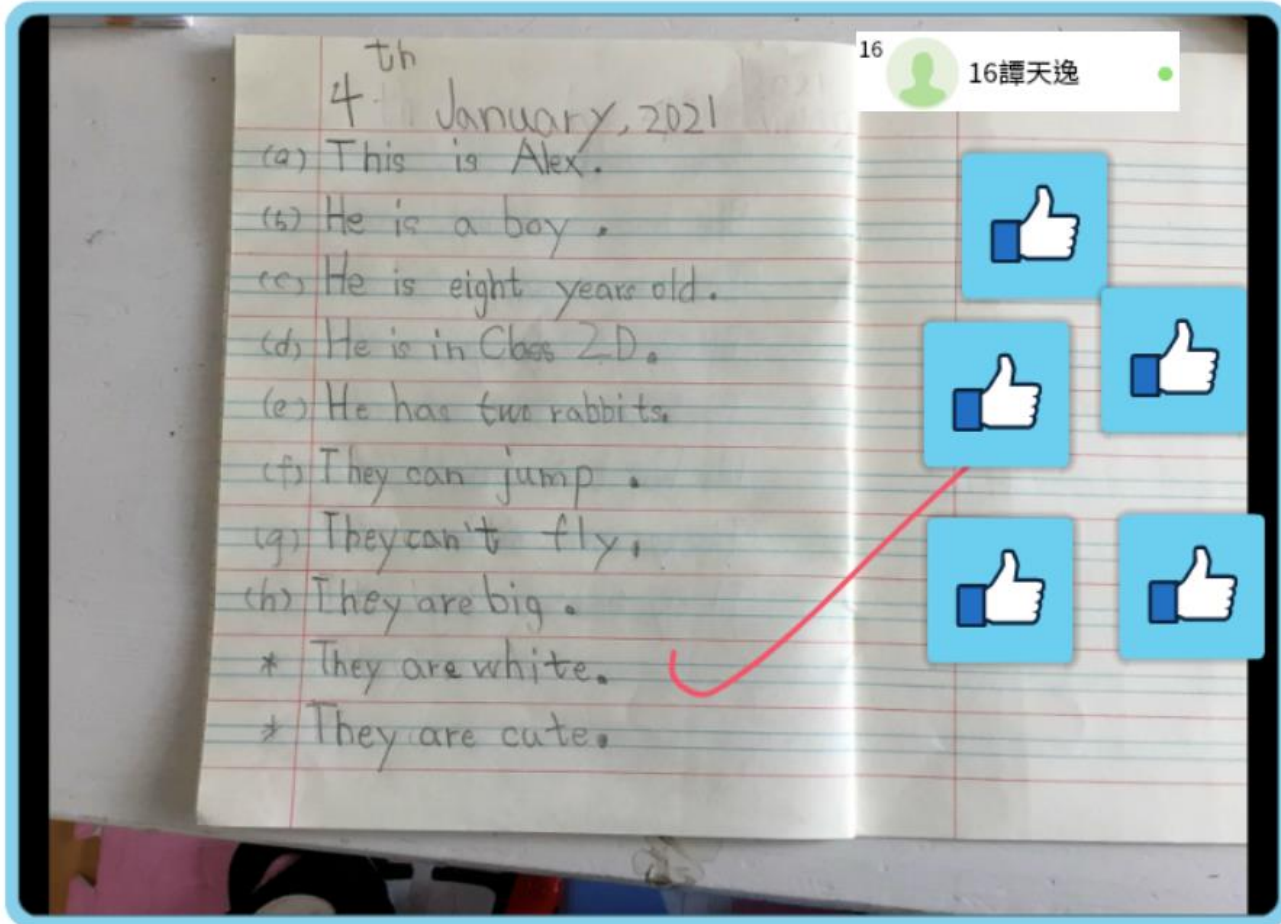 16
16譚天逸
4th January, 2021
(a) This is Alex.
(b) He is a boy.
(c) He is eight years old.
(d) He is in Class 2D.
(e) He has two rabbits.
(f) They can jump.
(g) They can't fly.
(h) They are big.
* They are white.
* They are cute.